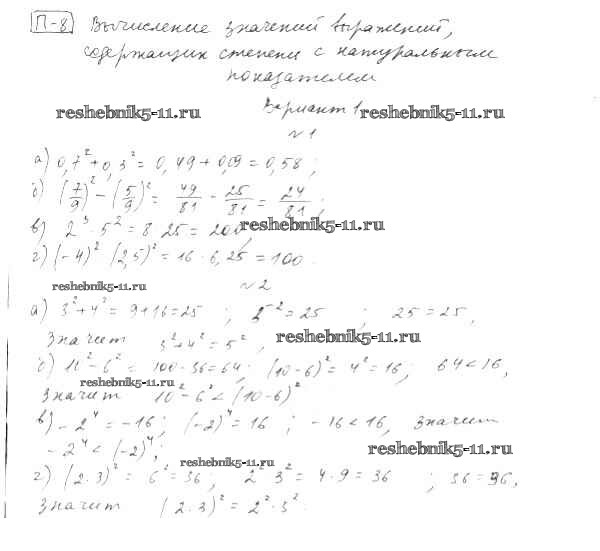 П-8. Вычисление значений выражений,
содержащих степени с натуральным
показателем
Вариант 1
reshebnik5-11.ru reshebnik5-11.ru
№1
а) 0,7² + 0,3² = 0,49 + 0,09 = 0,58;
б) (7/9)² - (5/9)² = 49/81 - 25/81 = 24/81;
в) 2³ · 5² = 8 25 = 200; reshebnik5-11.ru
г) (-4)² (2,5)² = 16 · 6,25 = 100.
reshebnik5-11.ru №2
а) 3² + 4² = 9+16=25 ; 5² = 25 ; 25 = 25,
значит 3² + 4² = 5², reshebnik5-11.ru
б) 10² - 6² = 100 - 36 = 64; (10-6)² = 4² = 16; 64 < 16,
reshebnik5-11.ru
значит 10² - 6² < (10-6)²
в) -2⁴ = -16; (-2)⁴ = 16 ; -16 < 16, значит
-2⁴ < (-2)⁴; reshebnik5-11.ru
reshebnik5-11.ru
г) (2·3)² = 6² = 36, 2² 3² = 4·9 = 36 ; 36 = 36,
значит (2·3)² = 2²·3².